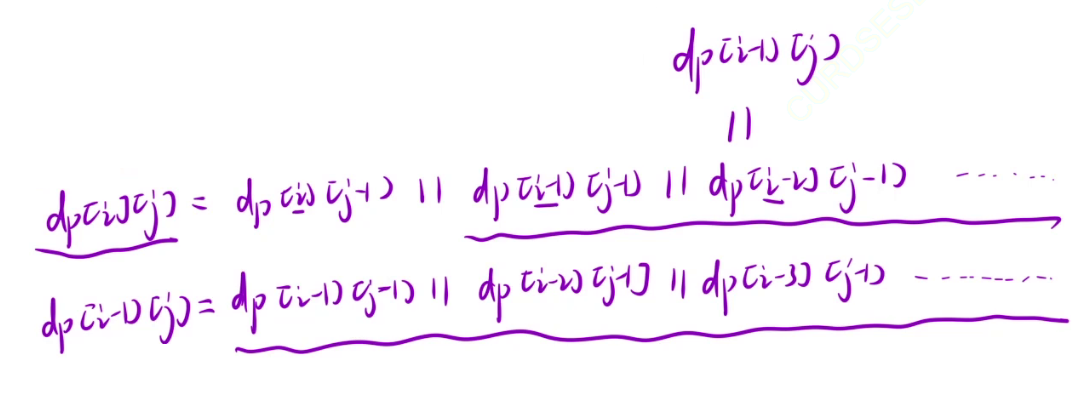 dp[i-1][j]
||
dp[i][j] = dp[i][j-1] || dp[i-1][j-1] || dp[i-2][j-1] ........
dp[i-1][j] = dp[i-1][j-1] || dp[i-2][j-1] || dp[i-3][j-1] ............